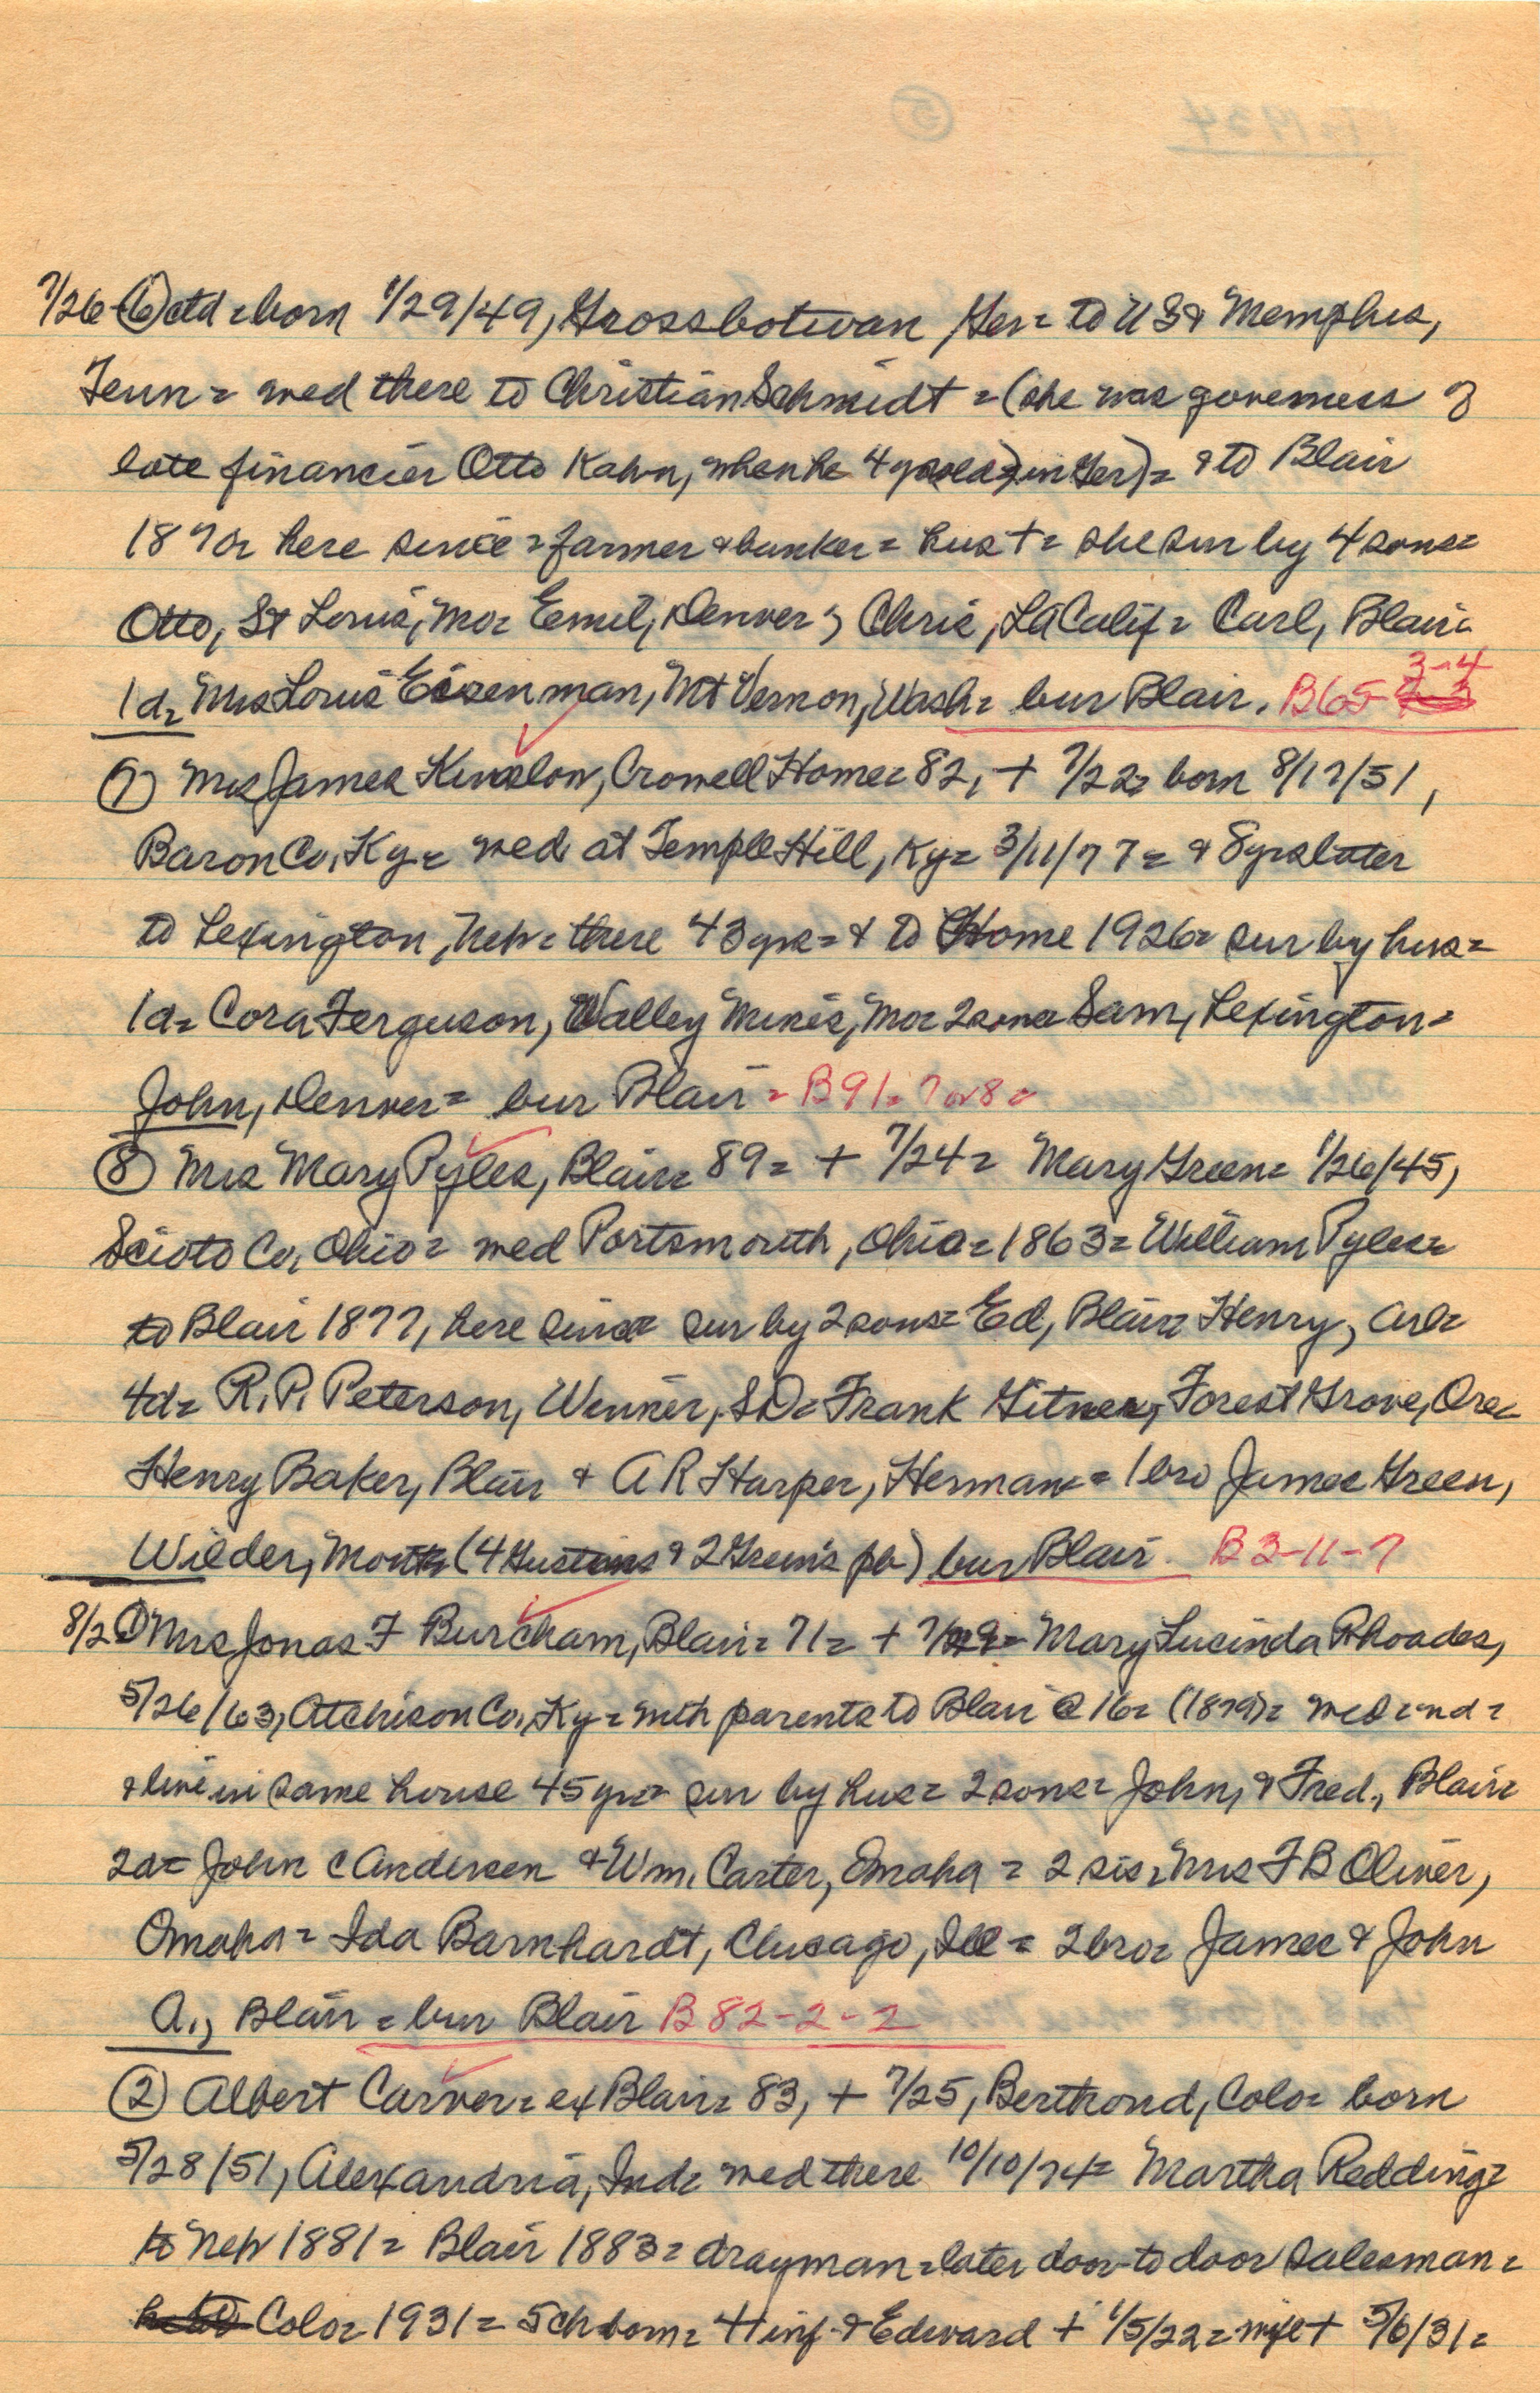 7/26 (6) ctd = born 1/29/49, Grossbotwan, Ger = to US & Memphis,
Tenn = wed there to Christian Schmidt = (she was governess of
late financier Otto Kahn, when he 4 yrs old, in Ger) = & to Blair
187 here since = farmer & banker = hus + = she sur by 4 sons =
Otto, St Louis, Mo = Emil, Denver, Chris, LA Calif = Carl, Blair =
1d = Mrs Louis Eisenman, Mt Vernon, Wash = bur Blair. B65 3-4
(7) Mrs James Kinslow, Crowell Home = 82, + 7/22 = born 8/17/51,
Baron Co, Ky = wed at Temple Hill, Ky = 3/11/77 = & 8 yrs later
to Lexington, Neb = there 43 yrs = & to Home 1926 = sur by hus =
1d = Cora Ferguson, Valley Mines, Mo = 2 sons Sam, Lexington =
John, Denver = bur Blair = B91 = 7 or 8 =
(8) Mrs Mary Pyles, Blair = 89 = + 7/24 = Mary Green = 1/26/45,
Scioto Co, Ohio = wed Portsmouth, Ohio = 1863 = William Pyles =
to Blair 1877, here since = sur by 2 sons = Ed, Blair = Henry, Arl =
4d = R. P. Peterson, Winner, SD = Frank Gitner, Forest Grove, Ore =
Henry Baker, Blair & A R Harper, Herman = 1 bro James Green,
Wilder, Mont (4 & 2 Green's pb) bur Blair. B3-11-7
8/2 (1) Mrs Jonas F Burcham, Blair = 71 = + 7/29 = Mary Lucinda Rhoades,
5/26/63, Atchison Co, Ky = with parents to Blair @ 16 = (1879) = wed = nd =
& live in same house 45 yrs = sur by hus = 2 sons = John, & Fred., Blair =
2d = John C Andersen & Wm. Carter, Omaha = 2 sis = Mrs F B Oliver,
Omaha = Ida Barnhardt, Chicago, Ill = 2 bro = James & John
A., Blair = bur Blair B 82-2-2
(2) Albert Carver = ex Blair = 83, + 7/25, Berthond, Colo = born
5/28/51, Alexandria, Ind = wed there 10/10/74 = Martha Redding =
to Neb 1881 = Blair 1883 = drayman = later door-to door salesman =
Colo = 1931 = 5 ch born = 4 inf & Edward + 1/5/22 = wife + 5/6/31 =